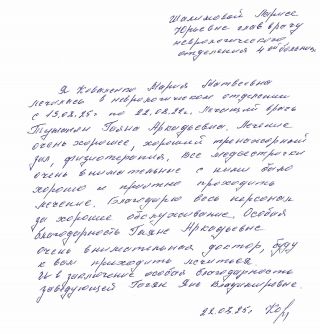 Шалимовой Ларисе
Юрьевне глав врачу
неврологического
отделения 4ой больницы
Я Коваленко Мария Матвеевна
лечилась в неврологическом отделении
с 13.03.25г по 22.03.25г. Лечащий врач
Гаяна Аркадьевна. Лечение
очень хорошее, хороший тренажорный
зал, физиотерапия, все медсестрички
очень внимательные с ними было
хорошо и приятно проходить
лечение. Благодарю весь персонал
за хорошее обслуживание. Особая
благодарность Гаяне Аркадьевне
очень внимательная доктор, буду
к вам приходить лечиться.
И в заключение особая благодарность
заведующей Яне Владимировне.
22.03.25г